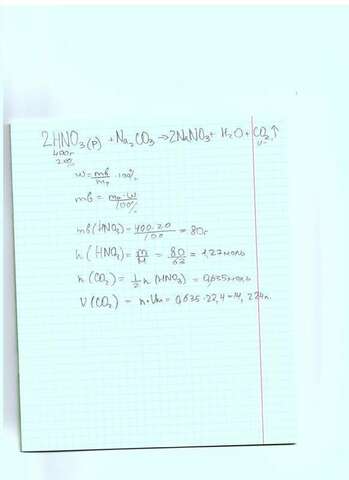 2HNO₃(р) + Na₂CO₃ → 2NaNO₃ + H₂O + CO₂↑
400г
20%
V-?
W = mв/mр · 100%
mв = mр·W/100%
mв(HNO₃) = 400·20/100 = 80г
n(HNO₃) = m/M = 80/63 = 1,27моль
n(CO₂) = 1/2 n(HNO₃) = 0,635моль
V(CO₂) = n·Vm = 0,635·22,4 = 14,224л.